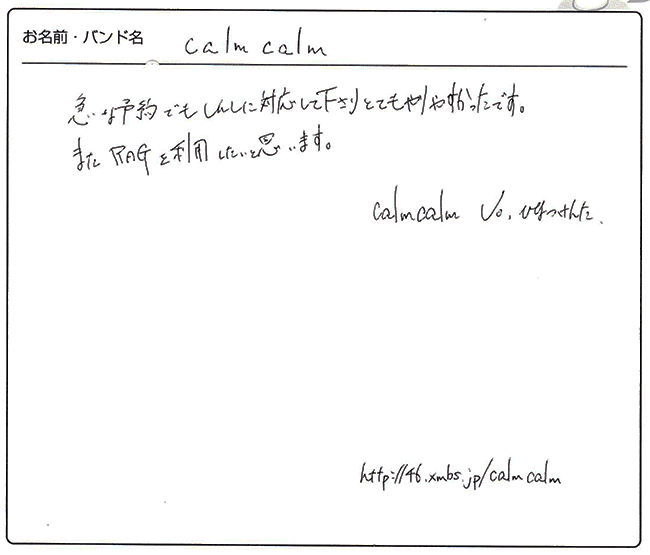 お名前・バンド名 calm calm
急な予約でもしんしに対応して下さりとてもやりやすかったです。
またRAGを利用したいと思います。
calmcalm Vo.
http://46.xmbs.jp/calmcalm